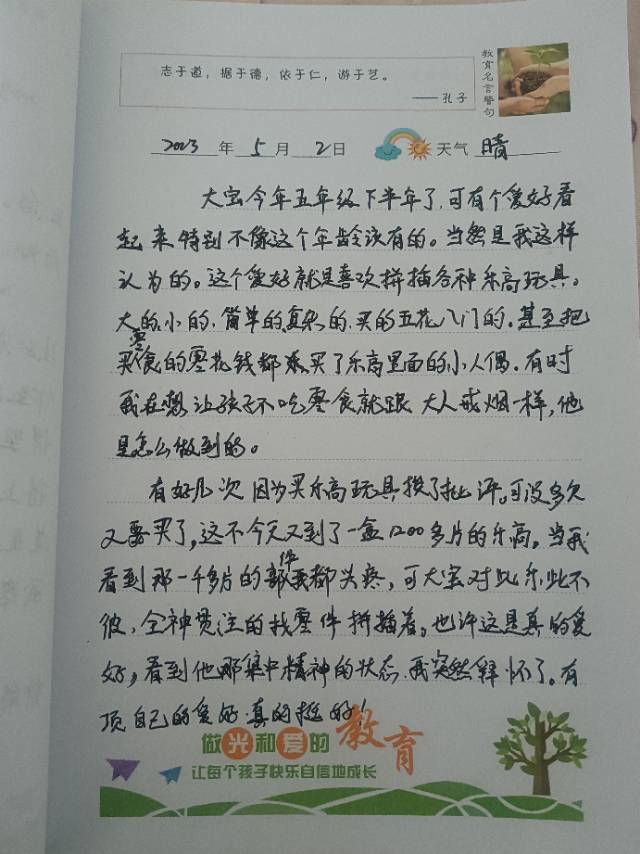 志于道，据于德，依于仁，游于艺。
—— 孔子
教育名言警句
2023年5月2日 天气 晴
大宝今年五年级下半年了，可有个爱好看
起来特别不像这个年龄该有的。当然是我这样
认为的。这个爱好就是喜欢拼插各种乐高玩具。
大的、小的、简单的、复杂的、买的五花八门的。甚至把
买零食的零花钱都来买了乐高里面的小人偶。有时
我在想让孩子不吃零食就跟大人戒烟一样，他
是怎么做到的。
有好几次因为买乐高玩具挨了批评。可没多久
又要买了，这不今天又到了一盒1200多片的乐高。当我
看到那一千多片的部件我都头疼，可大宝对此乐此不
彼，全神贯注的找零件拼插着。也许这是真的爱
好，看到他那集中精神的状态，我突然释怀了。有
项自己的爱好真的挺好！
做光和爱的教育
让每个孩子快乐自信地成长